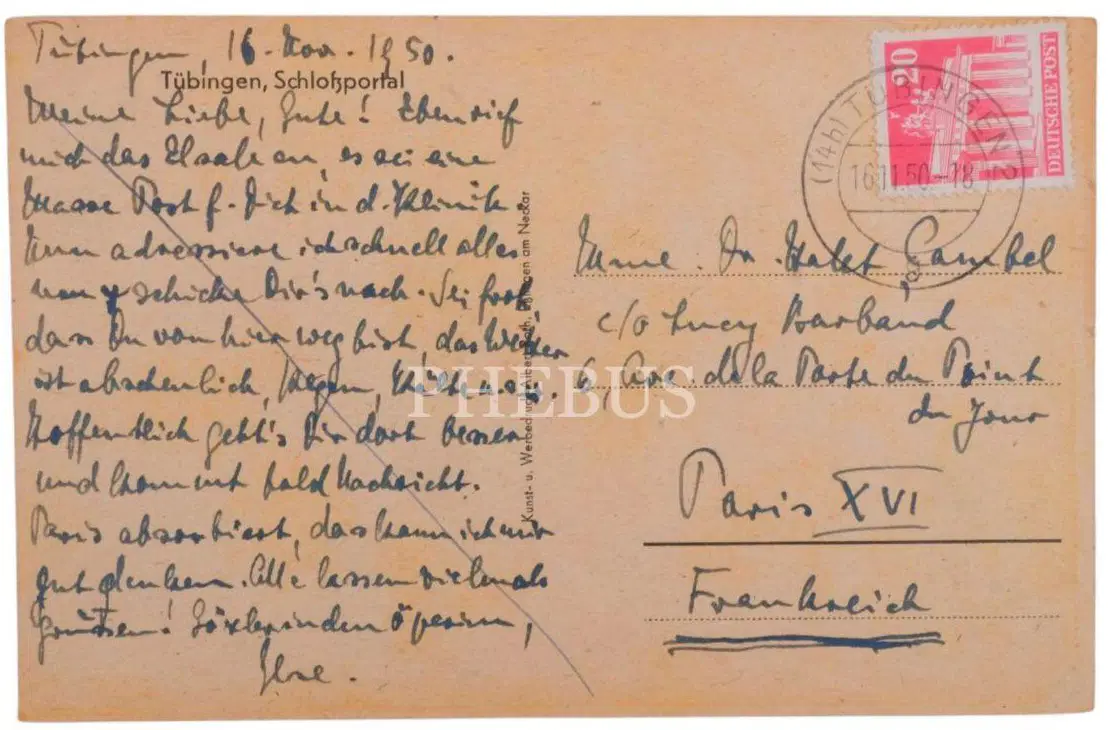 Tübingen, 16. Nov. 1950.
Tübingen, Schloßportal
Meine Liebe, Gute! Eben rief
mich das Elsale an, es sei eine
Masse Post f. Dich in d. Klinik.
Nun adressiere ich schnell alles
um & schicke Dir's nach. Sei froh
dass Du von hier weg bist, das Wetter
ist abscheulich, Regen, Kälte usw.
Hoffentlich geht's Dir dort besser
und kommt bald Nachricht.
Paris absorbiert, das kann ich mir
gut denken. Alle lassen vielmals
grüssen!
Else.
Kunst- u. Werbedruck Albert, Tübingen am Neckar
20
DEUTSCHE POST
(14b) TÜBINGEN 2
16.11.50.-18
Mme. Dr. Halet Çambel
c/o Lucy Barband
6, Av. de la Porte du Point
du Jour
Paris XVI
Frankreich
PHEBUS